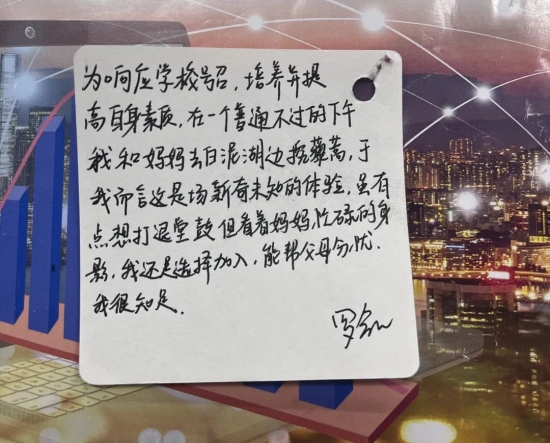 为响应学校号召，培养并提
高自身素质，在一个普通不过的下午
我和妈妈去白泥湖边挖藜蒿，于
我而言这是场新奇未知的体验，虽有
点想打退堂鼓但看着妈妈忙碌的身
影，我还是选择加入，能帮父母分忧.
我很知足.
罗